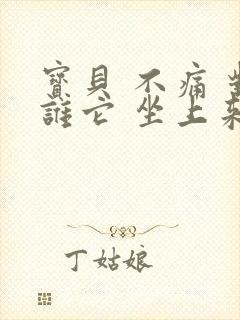 寶貝 不痛
誰它 坐上
丁姑娘